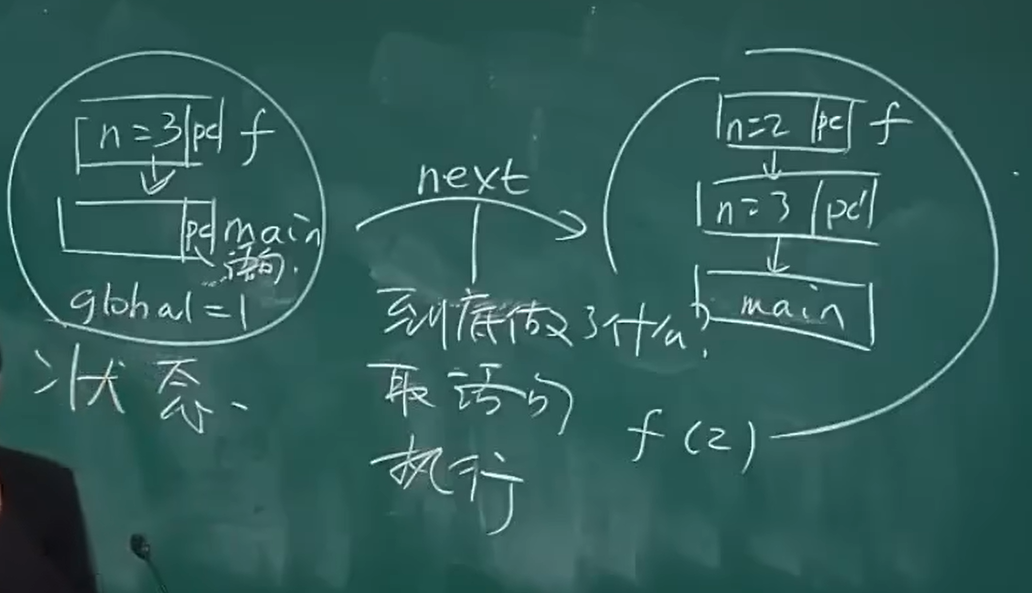 n=3 pc f
pc main
语句.
global=1
状态、
next
到底做了什么?
取语句
执行
n=2 pc f
n=3 pc'
main
f(2)